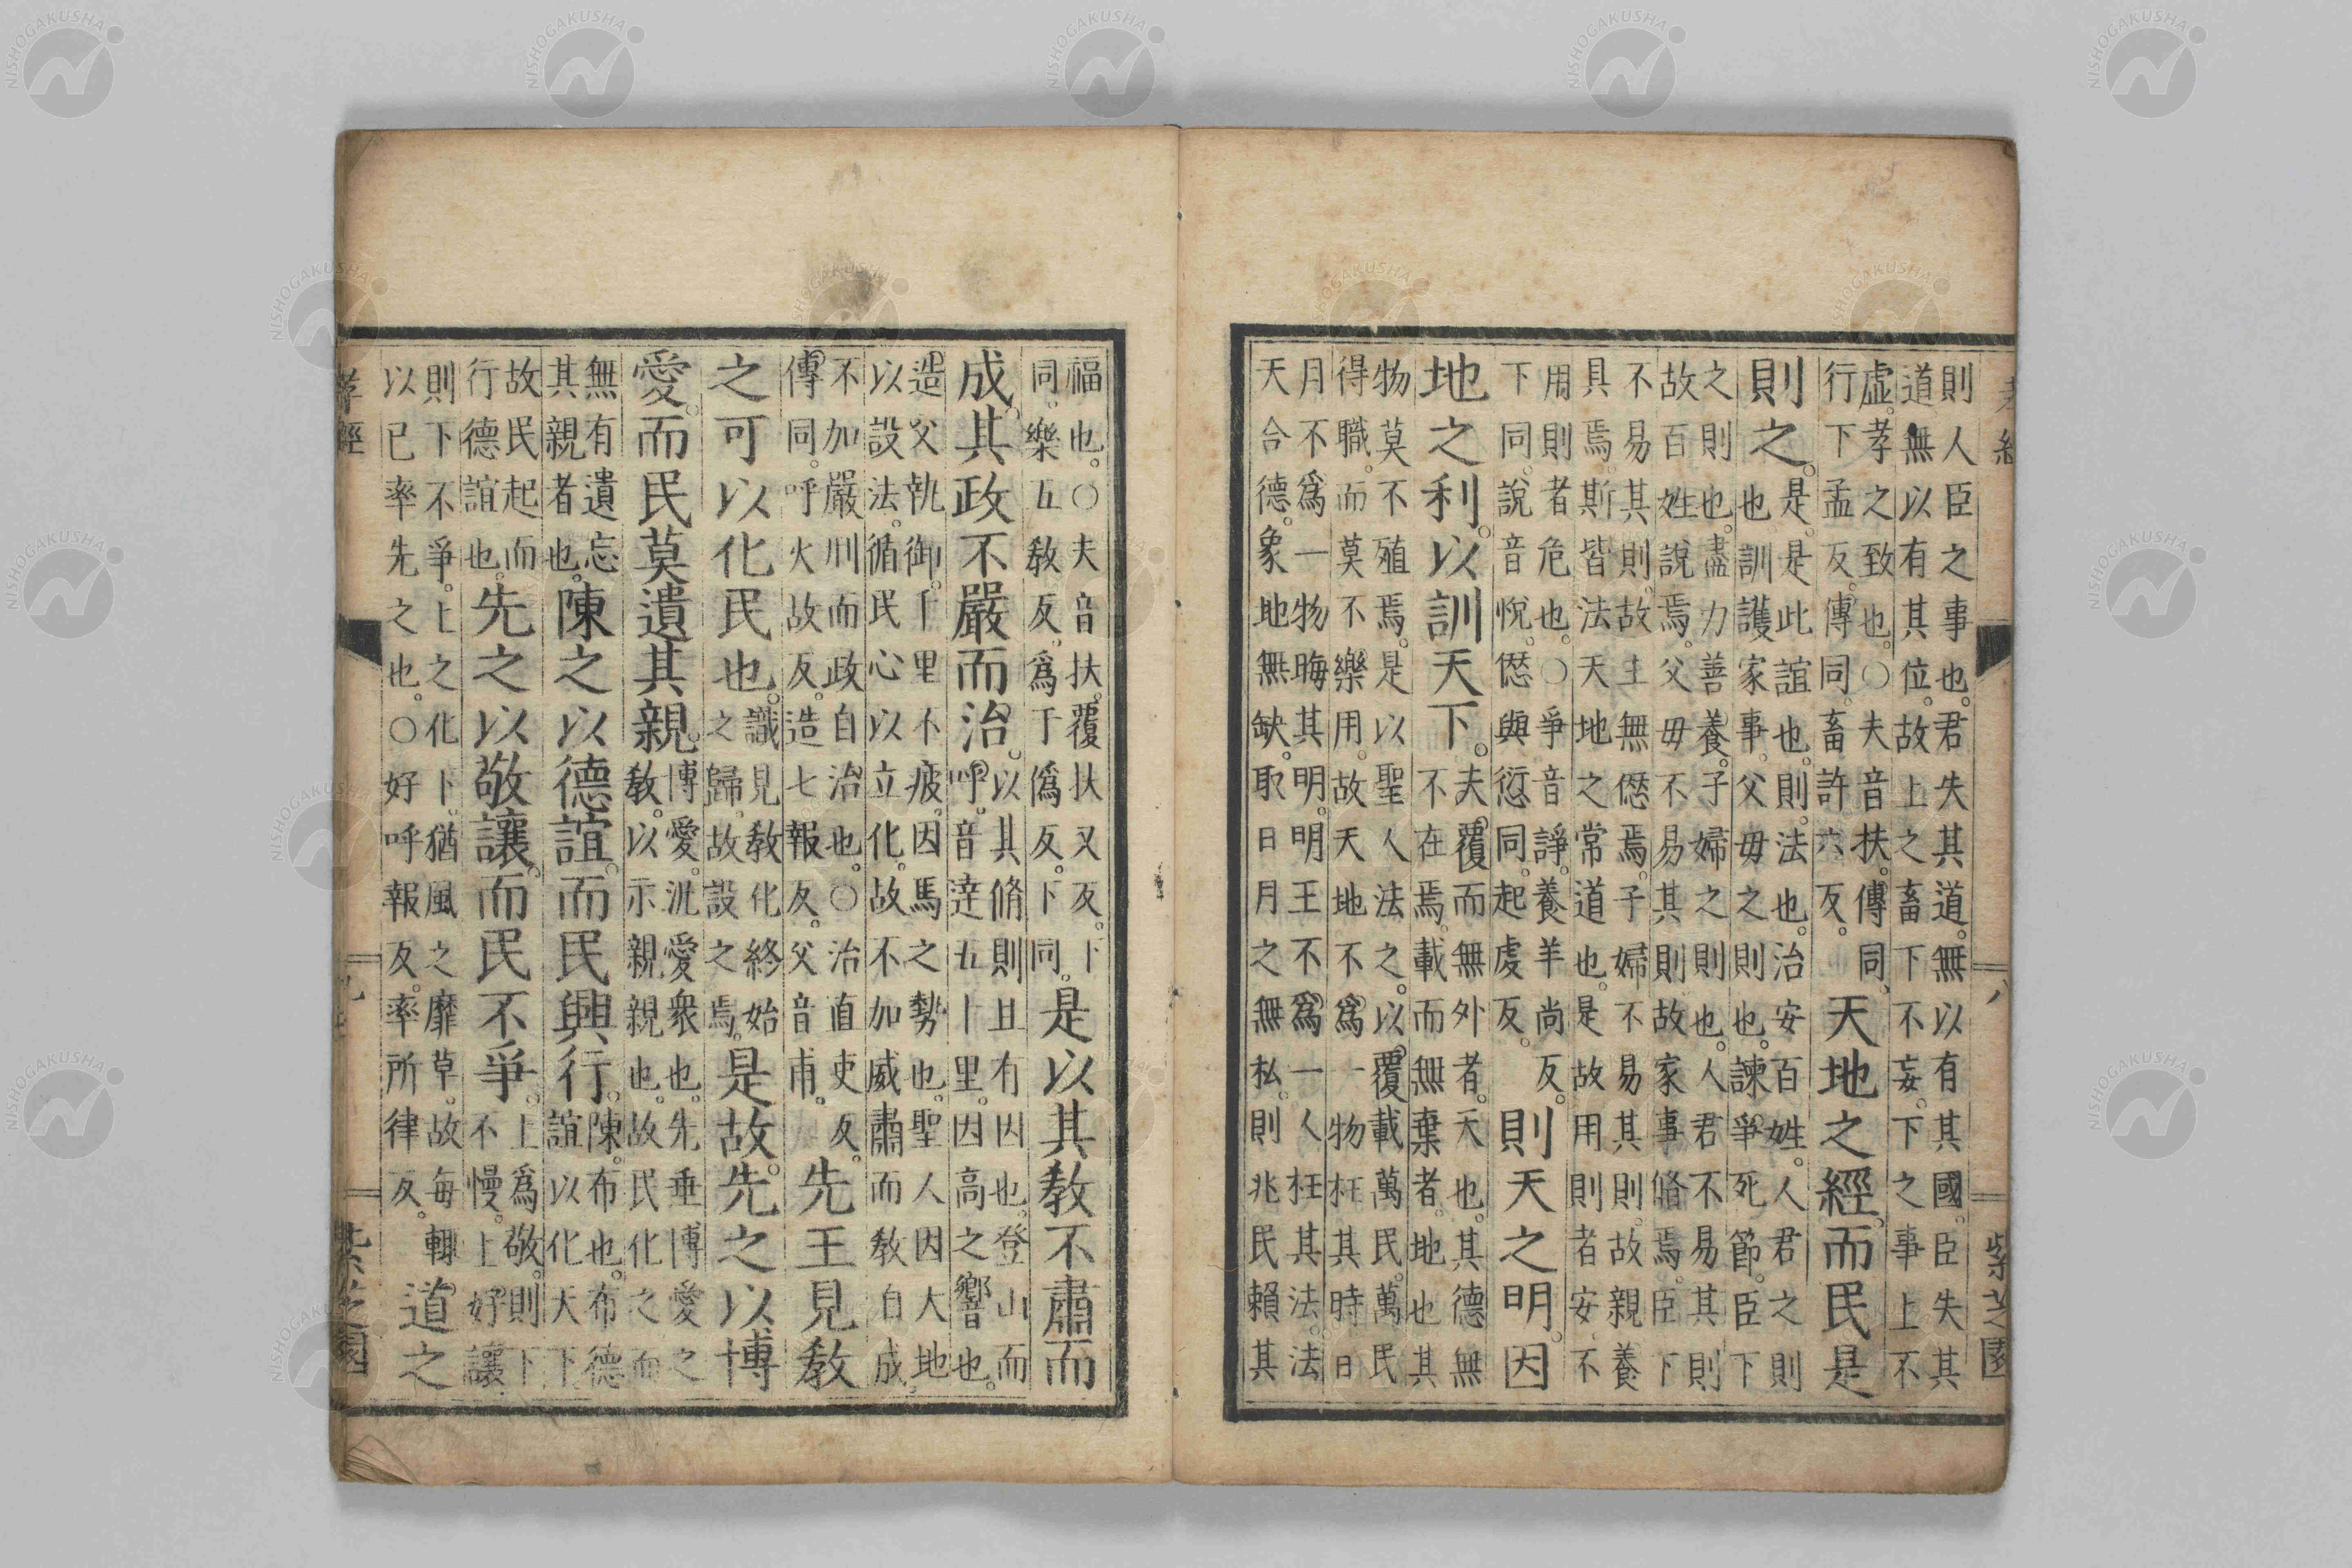 紫芝園
則人臣之事也。君失其道。無以有其國。臣失其
道無以有其位。故上之畜下不妄。下之事上不
虛。孝之致也。○夫音扶。傳同、
行下孟反。傳同。畜許六反。
天地之經。而民是
則之。
是。是此誼也。則。法也。治安百姓。人君之則
也訓護家事。父母之則也。諫爭死節。臣下
之則也。盡力善養。子婦之則也。人君不易其則
故百姓說焉。父母不易其則。故家事脩焉。臣下
不易其則。故主無㥶焉。子婦不易其則。故親養
具焉。斯皆法天地之常道也。是故用則者安不
用則者危也。○爭音諍。養羊尚反。
下同。說音悅。㥶與愆同。起虔反。
則天之明。因
地之利。以訓天下。
夫覆而無外者。天也。其德無
不在焉。載而無棄者。地也其
物莫不殖焉。是以聖人法之。以覆載萬民。萬民
得職。而莫不樂用。故天地不爲一物枉其時日
月不爲一物晦其明。明王不爲一人枉其法。法
天合德。象地無缺。取日月之無私。則兆民賴其
福也。○夫音扶。覆扶又反。下
同。樂五敎反。爲于僞反。下同。
是以其敎不肅而
成。其政不嚴而治。
以其脩則且有因也。登山而
呼。音達五十里。因高之響也。
造父執御。千里不疲。因馬之勢也。聖人因人地
以設法。循民心以立化。故不加威肅而敎自成。
不加嚴刑而政自治也。○治直吏反。
傳同。呼火故反。造七報反。父音甫。
先王見敎
之可以化民也。
識見敎化終始
之歸。故設之焉。
是故。先之以博
愛。而民莫遺其親。
博愛。汎愛衆也。先垂博愛之
敎。以示親親也。故民化之而
無有遺忘
其親者也。
陳之以德誼。而民興行。
陳。布也。布德
誼以化天下。
故民起而
行德誼也。
先之以敬讓。而民不爭。
上爲敬。則下
不慢。上好讓
則下不爭。上之化下。猶風之靡草。故每輒
以已率先之也。○好呼報反。率所律反。
道之
孝經
紫芝園